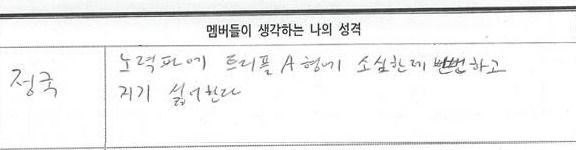 멤버들이 생각하는 나의 성격
정국
노력파에 트리플 A형에 소심한데 뻔뻔하고
지기 싫어한다